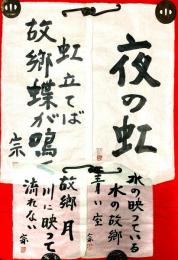 夜の虹
虹立てば
故郷蝶が鳴く
宗
水の映っている
水の故郷
青い空
宗
故郷 月
川に映って
流れない
宗